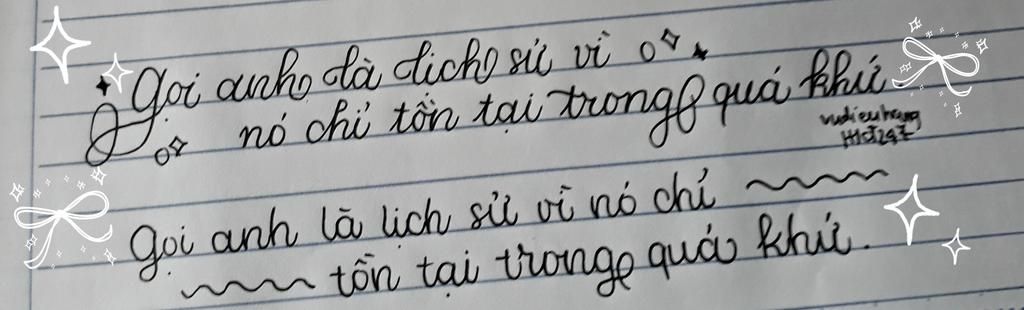 gọi anh là lịch sử vì
nó chỉ tồn tại trong quá khứ
vudieuhang
gọi anh là lịch sử vì nó chỉ
tồn tại trong quá khứ.